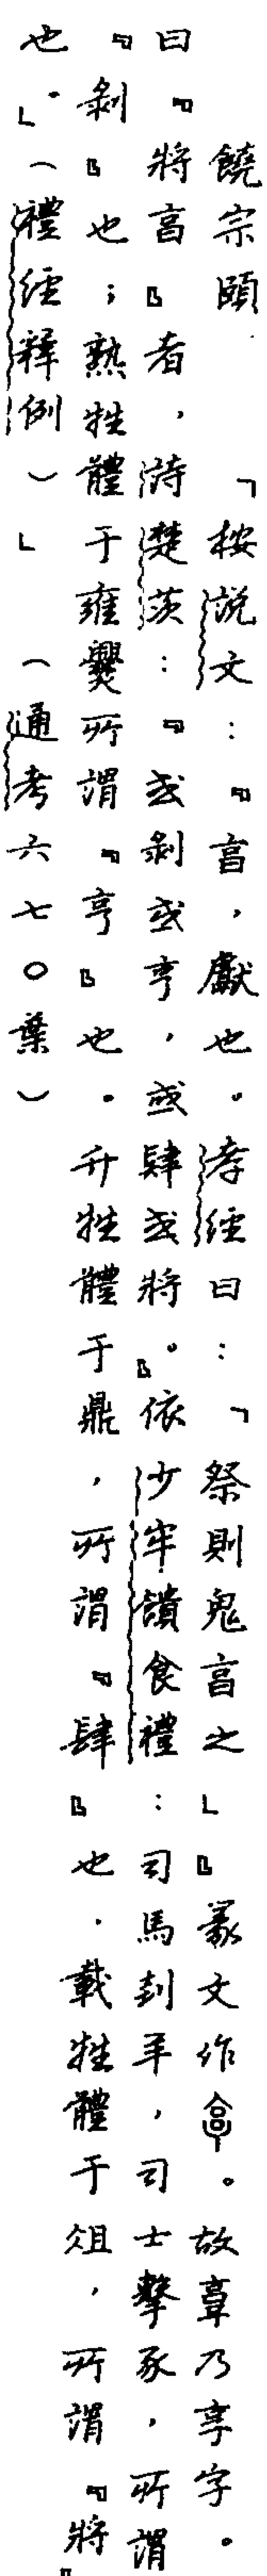 饒宗頤「按説文：『亯，獻也。孝經曰：「祭則鬼亯之」』篆文作𠅠。故𦎫乃享字。
曰『將亯』者，詩楚茨：『或剝或亨，或肆或將。』依少牢饋食禮：司馬刲羊，司士擊豕，所謂
『剝』也；熟牲體于雍爨所謂『亨』也。升牲體于鼎，所謂『肆』也。載牲體于俎，所謂『將』
也。」（禮經釋例）」（通考六七〇葉）